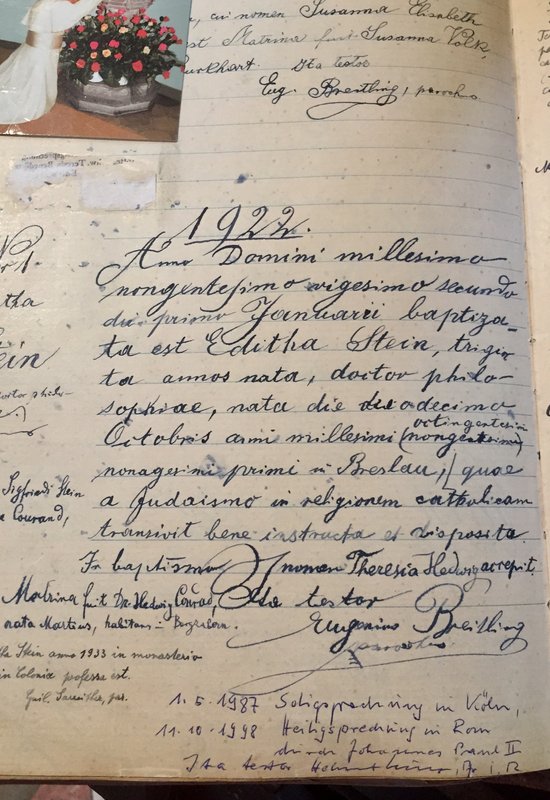 cui nomen Susanna Elisabeth
est Matrina fuit Susanna Volk,
Burkhart. Ita testor
Eug. Breitling, parochus.
1922.
Nr 1.
Anno Domini millesimo
nongentesimo vigesimo secundo
die primo Januarii baptiza-
ta est Editha Stein, trigin
ta annos nata, doctor philo-
sophiae, nata die duodecimo
octingentesimi
Octobris anni millesimi (nongentesimi)
nonagesimi primi in Breslau, quae
a Judaismo in religionem catholicam
transivit bene instructa et disposita.
In baptismo nomen Theresia Hedwig accepit.
doctor philo-
Sigfriedi Stein
Courand,
Matrina fuit Dr. Hedwig Conrad, Ita testor
nata Martius, habitans in Bergzabern.
Eugenius Breitling
parochus
Stein anno 1933 in monasterio
in Colonia professa est.
1.5.1987 Seligsprechung in Köln,
11.10.1998 Heiligsprechung in Rom
durch Johannes Paul II
Ita testor